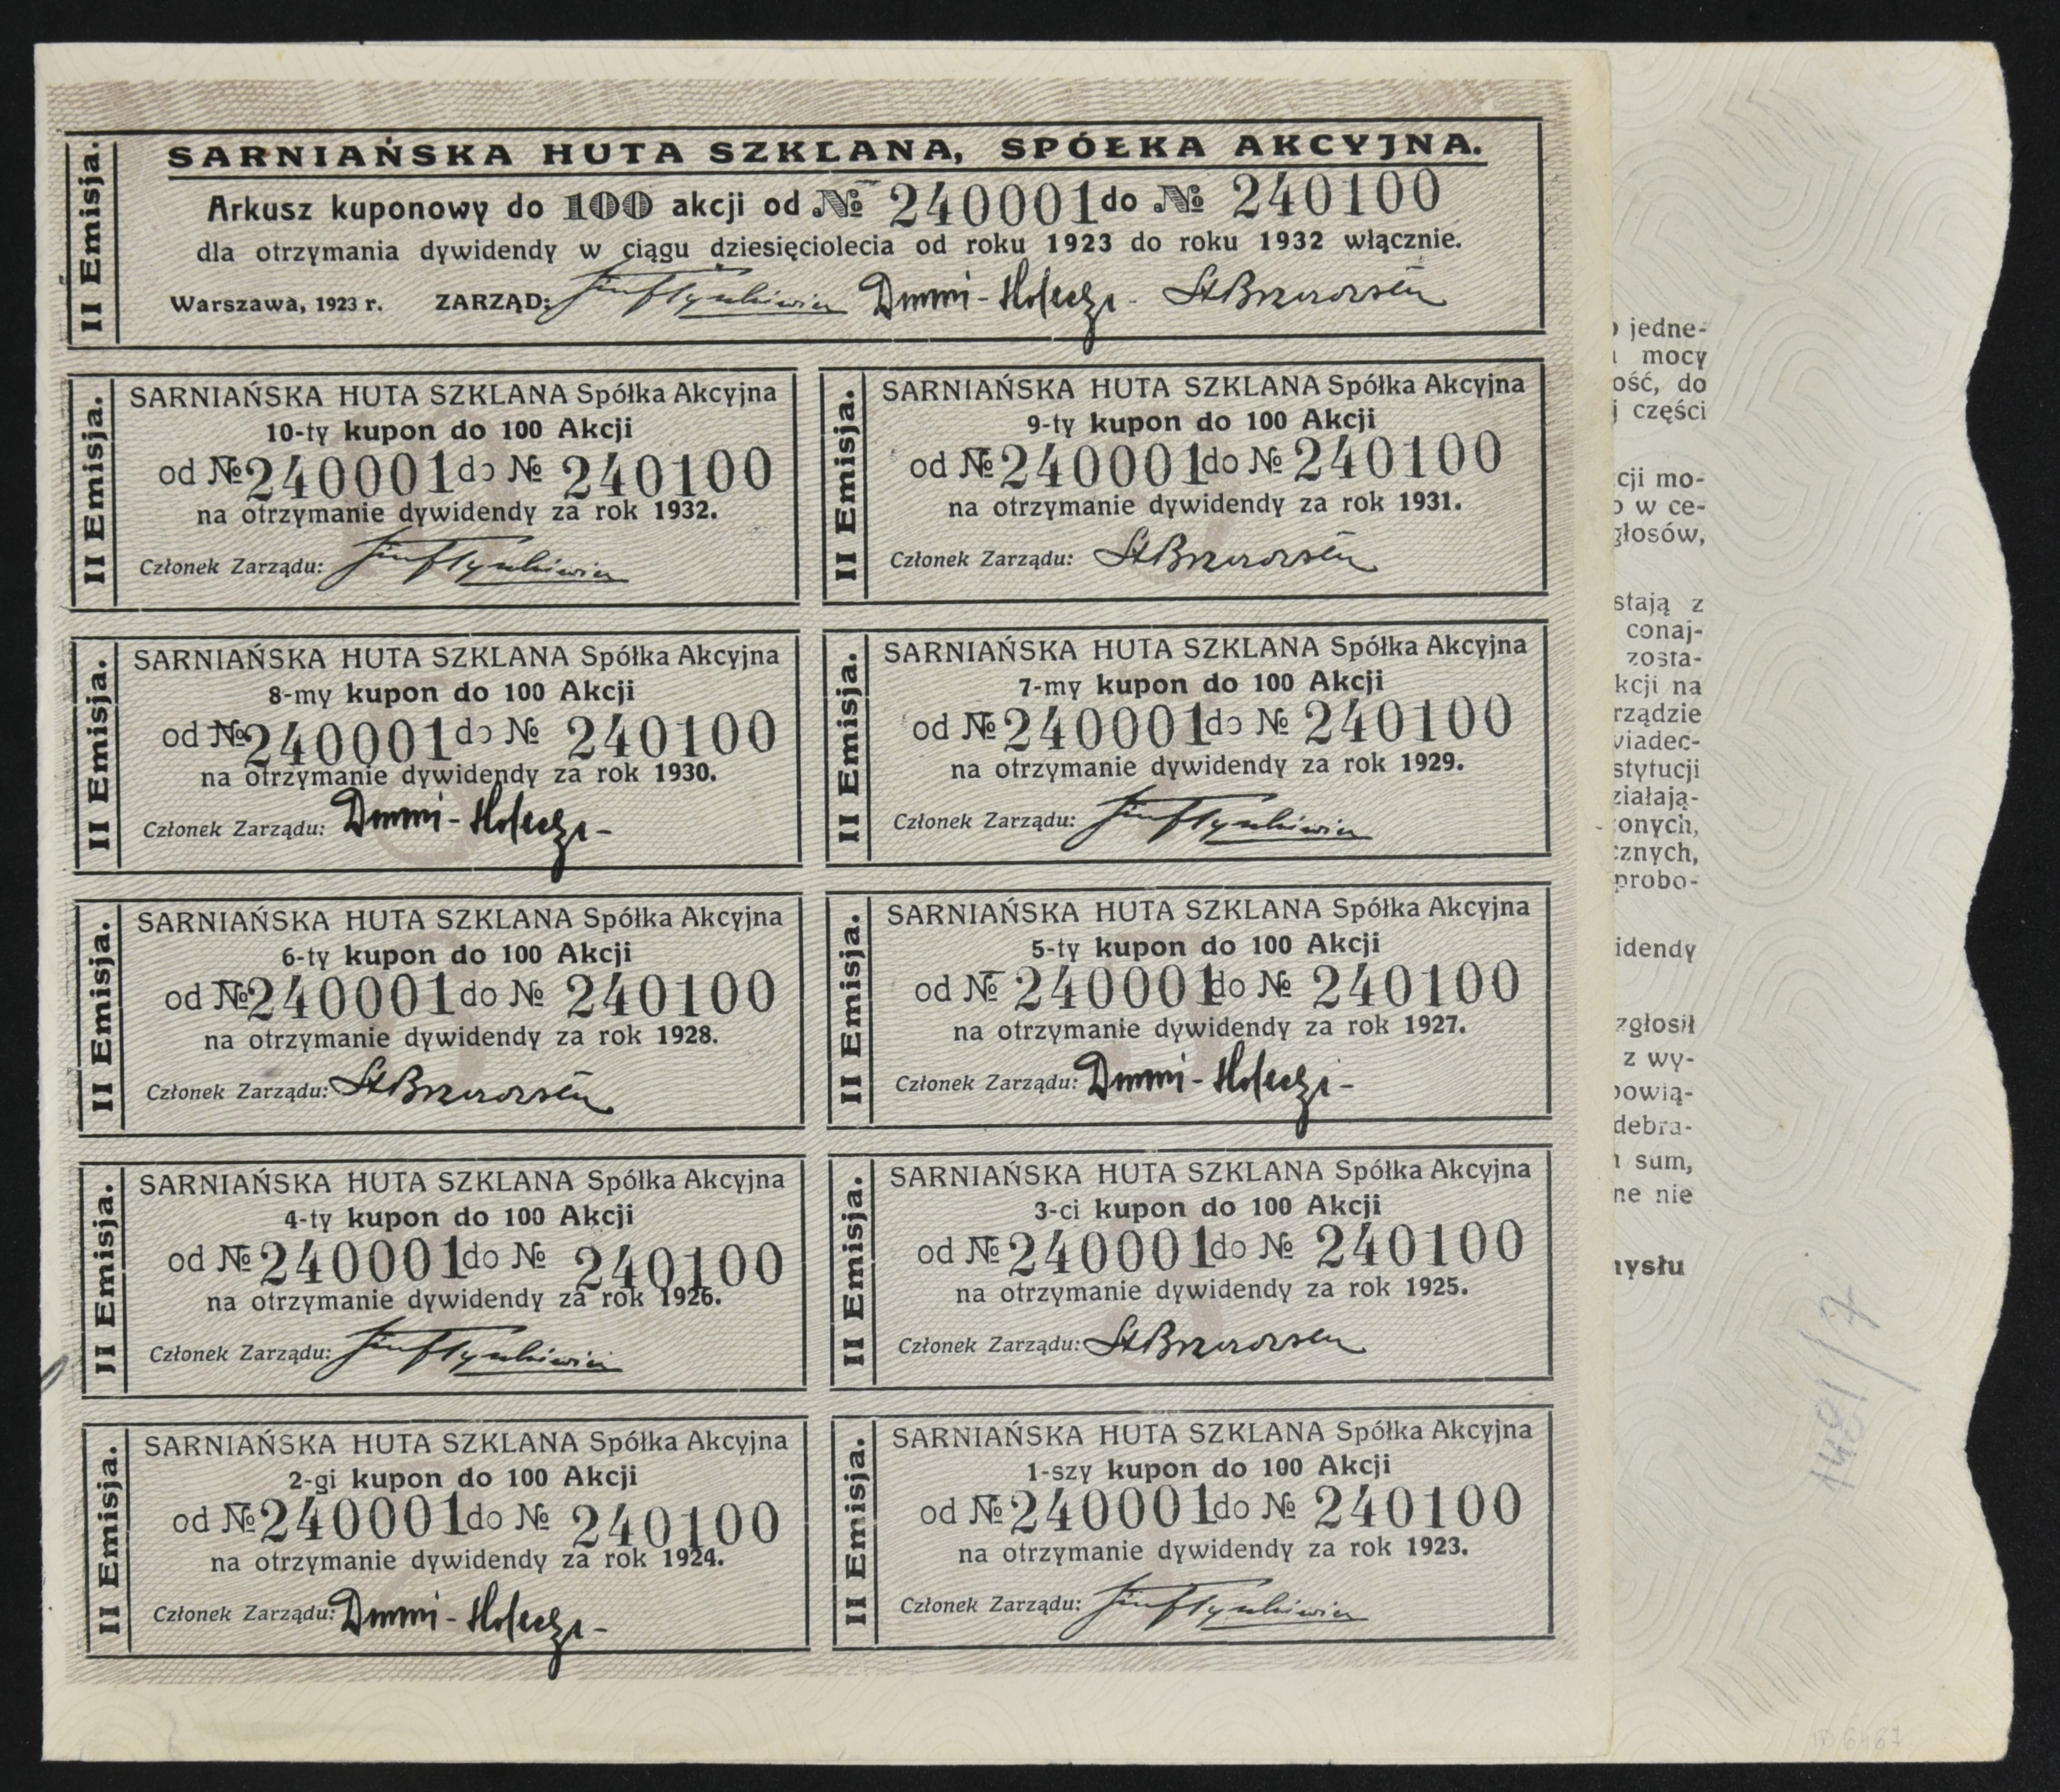 II Emisja.
SARNIAŃSKA HUTA SZKLANA, SPÓŁKA AKCYJNA.
Arkusz kuponowy do 100 akcji od № 240001 do № 240100
dla otrzymania dywidendy w ciągu dziesięciolecia od roku 1923 do roku 1932 włącznie.
Warszawa, 1923 r. ZARZĄD:
II Emisja.
SARNIAŃSKA HUTA SZKLANA Spółka Akcyjna
10-ty kupon do 100 Akcji
od № 240001 do № 240100
na otrzymanie dywidendy za rok 1932.
Członek Zarządu:
II Emisja.
SARNIAŃSKA HUTA SZKLANA Spółka Akcyjna
9-ty kupon do 100 Akcji
od № 240001 do № 240100
na otrzymanie dywidendy za rok 1931.
Członek Zarządu:
II Emisja.
SARNIAŃSKA HUTA SZKLANA Spółka Akcyjna
8-my kupon do 100 Akcji
od № 240001 do № 240100
na otrzymanie dywidendy za rok 1930.
Członek Zarządu:
II Emisja.
SARNIAŃSKA HUTA SZKLANA Spółka Akcyjna
7-my kupon do 100 Akcji
od № 240001 do № 240100
na otrzymanie dywidendy za rok 1929.
Członek Zarządu:
II Emisja.
SARNIAŃSKA HUTA SZKLANA Spółka Akcyjna
6-ty kupon do 100 Akcji
od № 240001 do № 240100
na otrzymanie dywidendy za rok 1928.
Członek Zarządu:
II Emisja.
SARNIAŃSKA HUTA SZKLANA Spółka Akcyjna
5-ty kupon do 100 Akcji
od № 240001 do № 240100
na otrzymanie dywidendy za rok 1927.
Członek Zarządu:
II Emisja.
SARNIAŃSKA HUTA SZKLANA Spółka Akcyjna
4-ty kupon do 100 Akcji
od № 240001 do № 240100
na otrzymanie dywidendy za rok 1926.
Członek Zarządu:
II Emisja.
SARNIAŃSKA HUTA SZKLANA Spółka Akcyjna
3-ci kupon do 100 Akcji
od № 240001 do № 240100
na otrzymanie dywidendy za rok 1925.
Członek Zarządu:
II Emisja.
SARNIAŃSKA HUTA SZKLANA Spółka Akcyjna
2-gi kupon do 100 Akcji
od № 240001 do № 240100
na otrzymanie dywidendy za rok 1924.
Członek Zarządu:
II Emisja.
SARNIAŃSKA HUTA SZKLANA Spółka Akcyjna
1-szy kupon do 100 Akcji
od № 240001 do № 240100
na otrzymanie dywidendy za rok 1923.
Członek Zarządu:
jedne-
mocy
ość, do
części
cji mo-
w ce-
głosów,
stają z
conaj-
zosta-
kcji na
rządzie
wiadec-
stytucji
ziałają-
onych,
cznych,
probo-
idendy
zgłosił
z wy-
powią-
debra-
sum,
ne nie
mysłu
1481/7
ID 6467